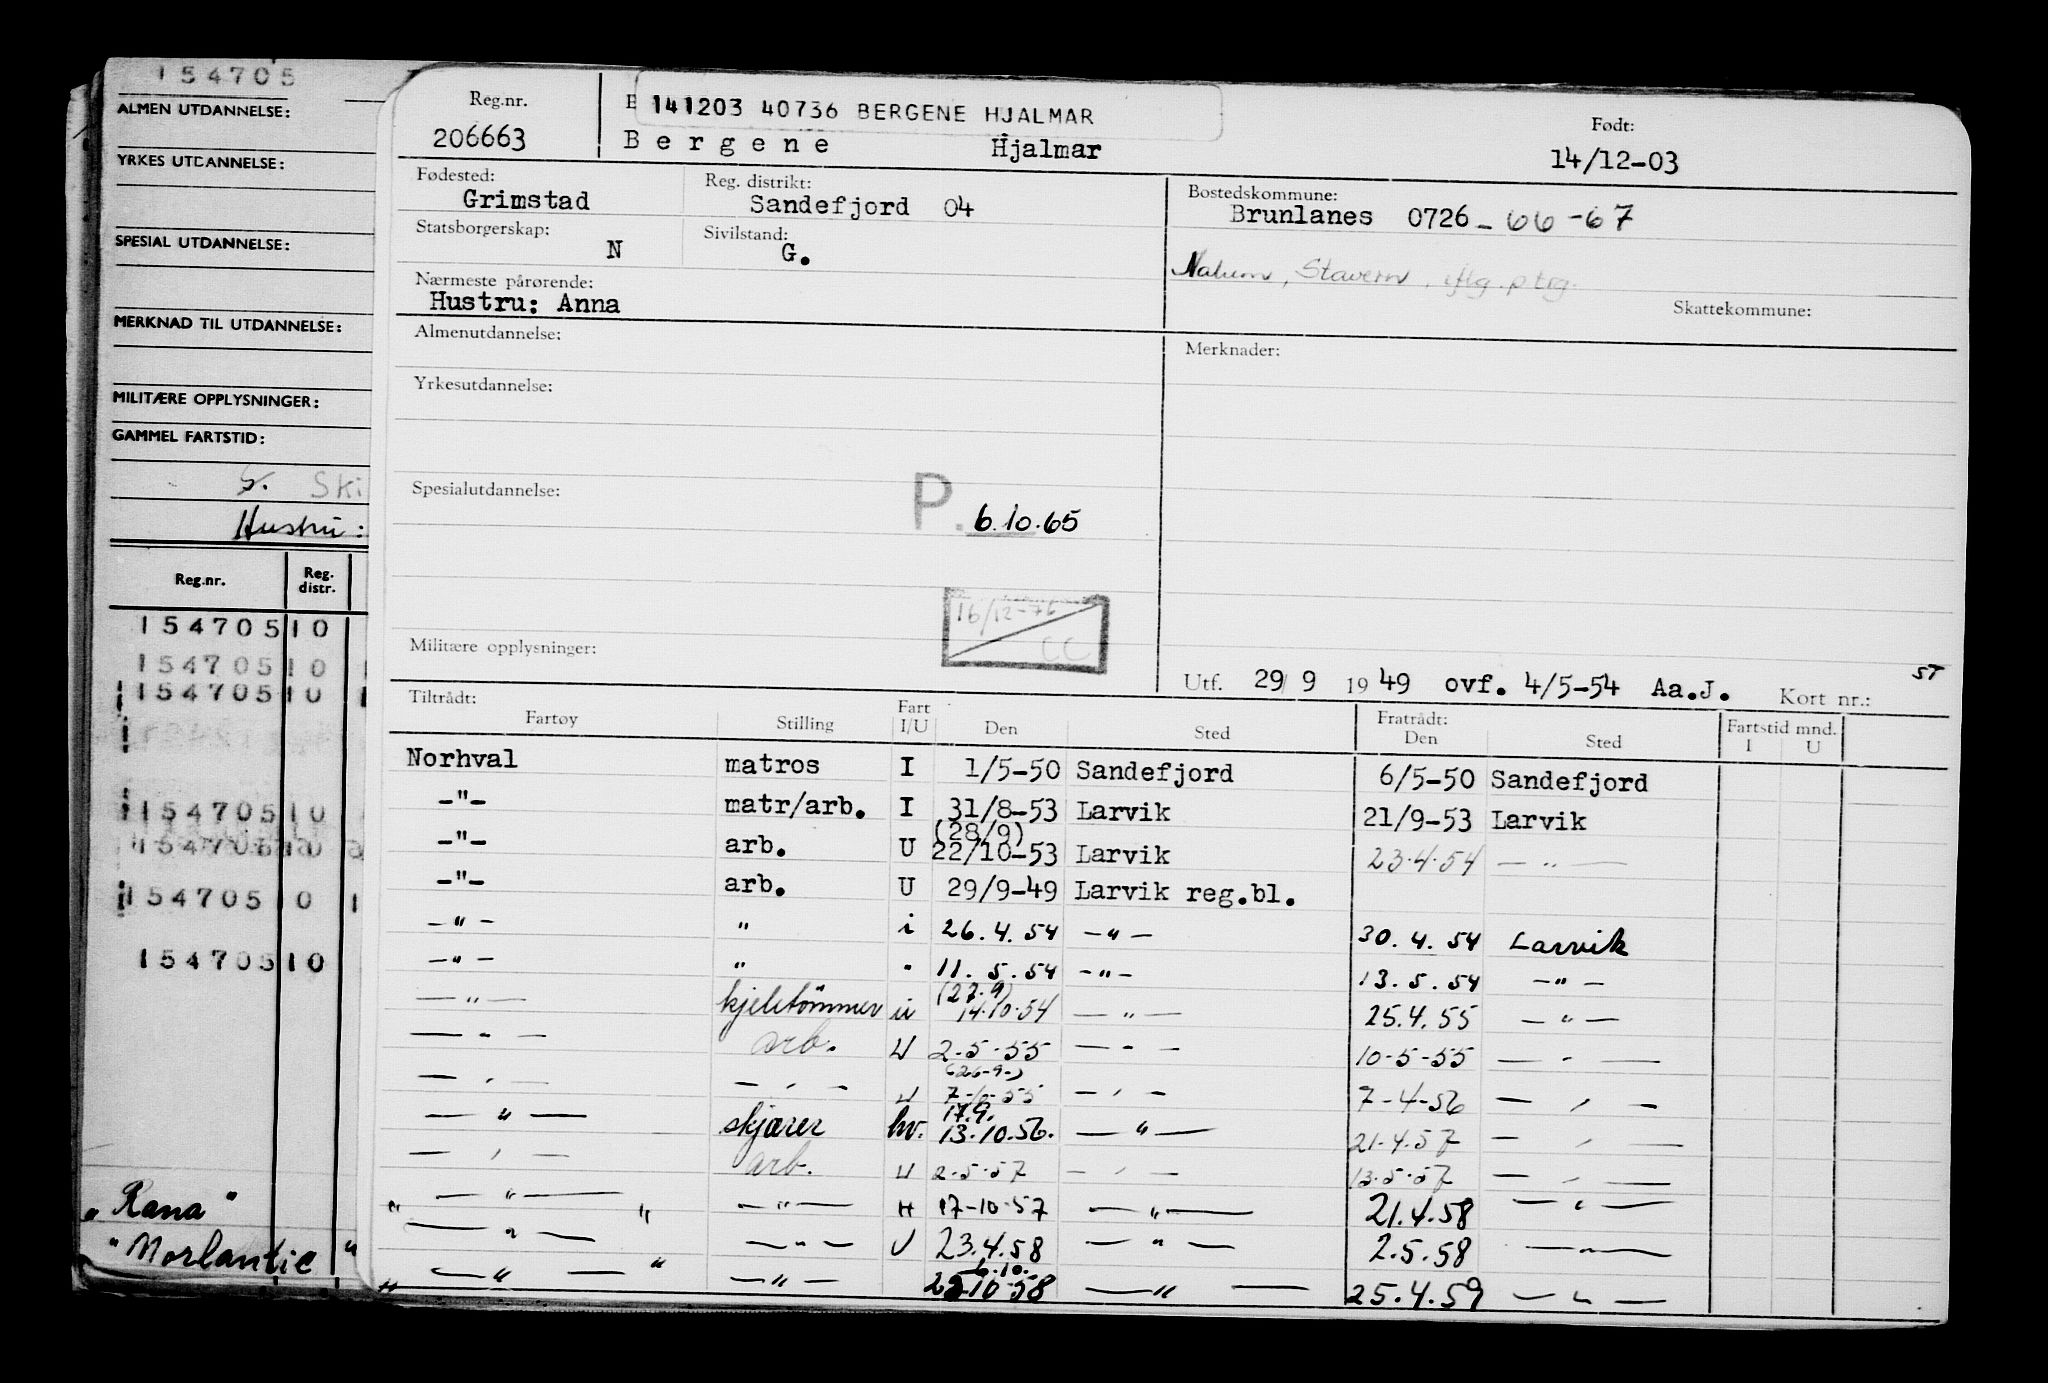 154705
ALMEN UTDANNELSE:
YRKES UTDANNELSE:
SPESIAL UTDANNELSE:
MERKNAD TIL UTDANNELSE:
MILITÆRE OPPLYSNINGER:
GAMMEL FARTSTID:
Ski
Hustru:
Reg.nr. Reg. distr.
154705 10
154705 10
154705 10
154705 10
154705 10
154705 10
154705 10
"Rana"
"Norlantic"
Reg.nr. 141203 40736 BERGENE HJALMAR Født:
206663 Bergene Hjalmar 14/12-03
Fødested: Reg. distrikt: Bostedskommune:
Grimstad Sandefjord 04 Brunlanes 0726 - 66-67
Statsborgerskap: Sivilstand:
N G.
Nalum, Stavern, iflg. ptrg.
Nærmeste pårørende: Skattekommune:
Hustru: Anna
Almenutdannelse: Merknader:
Yrkesutdannelse:
Spesialutdannelse: P. 6.10.65
16/12-76
CC
Militære opplysninger:
ST
Utf. 29/ 9 19 49 ovf. 4/5-54 Aa.J. Kort nr.:
Tiltrådt: Fart Fratrådt: Fartstid mnd.
Fartøy Stilling I/U Den Sted Den Sted I U
Norhval matros I 1/5-50 Sandefjord 6/5-50 Sandefjord
-"- matr/arb. I 31/8-53 Larvik 21/9-53 Larvik
(28/9)
-"- arb. U 22/10-53 Larvik 23.4.54 -"-
-"- arb. U 29/9-49 Larvik reg.bl.
-"- " i 26.4.54 -"- 30.4.54 Larvik
-"- " " 11.5.54 -"- 13.5.54 -"-
(27.9)
-"- kjeletömmer u 14.10.54 -"- 25.4.55 -"-
-"- arb. U 2-5-55 -"- 10-5-55 -"-
(26-9-)
-"- -"- U 7-10-55 -"- 7-4-56 -"-
17.9.
-"- skjærer hv. 13.10.56. -"- 21.4.57 -"-
-"- arb. U 2-5-57 -"- 13-5-57 -"-
-"- -"- H 17-10-57 -"- 21.4.58 -"-
" -"- " -"- U 23.4.58 -"- 2.5.58 -"-
6.10.
" -"- " -"- 25.10-58 -"- 25.4.59 -"-